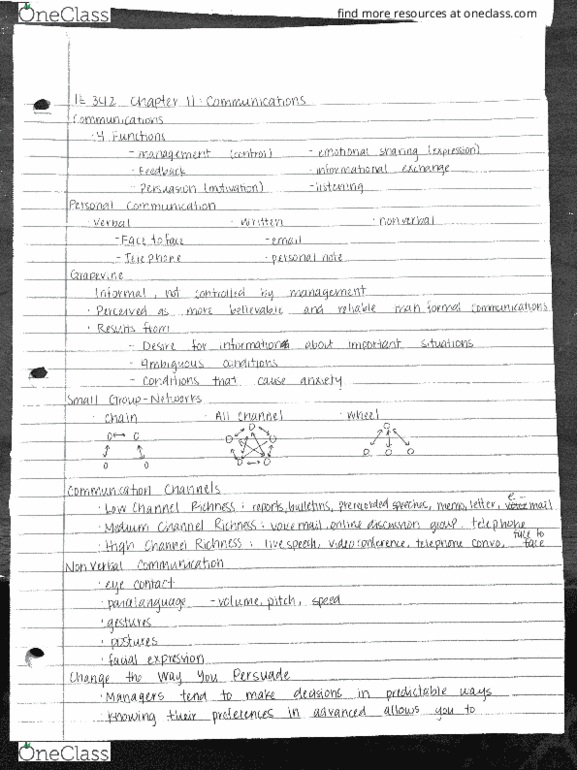 OneClass
find more resources at oneclass.com
IE 342 Chapter 11: Communications
Communications
· 4 Functions
- management (control) - emotional sharing (expression)
· Feedback · informational exchange
- Persuasion (motivation) - listening
Personal Communication
· Verbal · Written · nonverbal
- Face to face - email
- Telephone - personal note
Grapevine
Informal, not controlled by management
· Perceived as more believable and reliable than formal communications
· Results from
- Desire for information about important situations
- Ambiguous conditions
- conditions that cause anxiety
Small Group-Networks
· chain · All Channel · Wheel
Communication Channels
· Low Channel Richness: reports, bulletins, prerecorded speeches, memo, letter, voice e-mail
· Medium Channel Richness: voicemail, online discussion group, telephone
· High Channel Richness: live speech, video conference, telephone convo, face to face
Non Verbal Communication
· eye contact
· paralanguage - volume, pitch, speed
· gestures
· postures
· facial expression
Change the Way You Persuade
· Managers tend to make decisions in predictable ways
knowing their preferences in advanced allows you to
OneClass